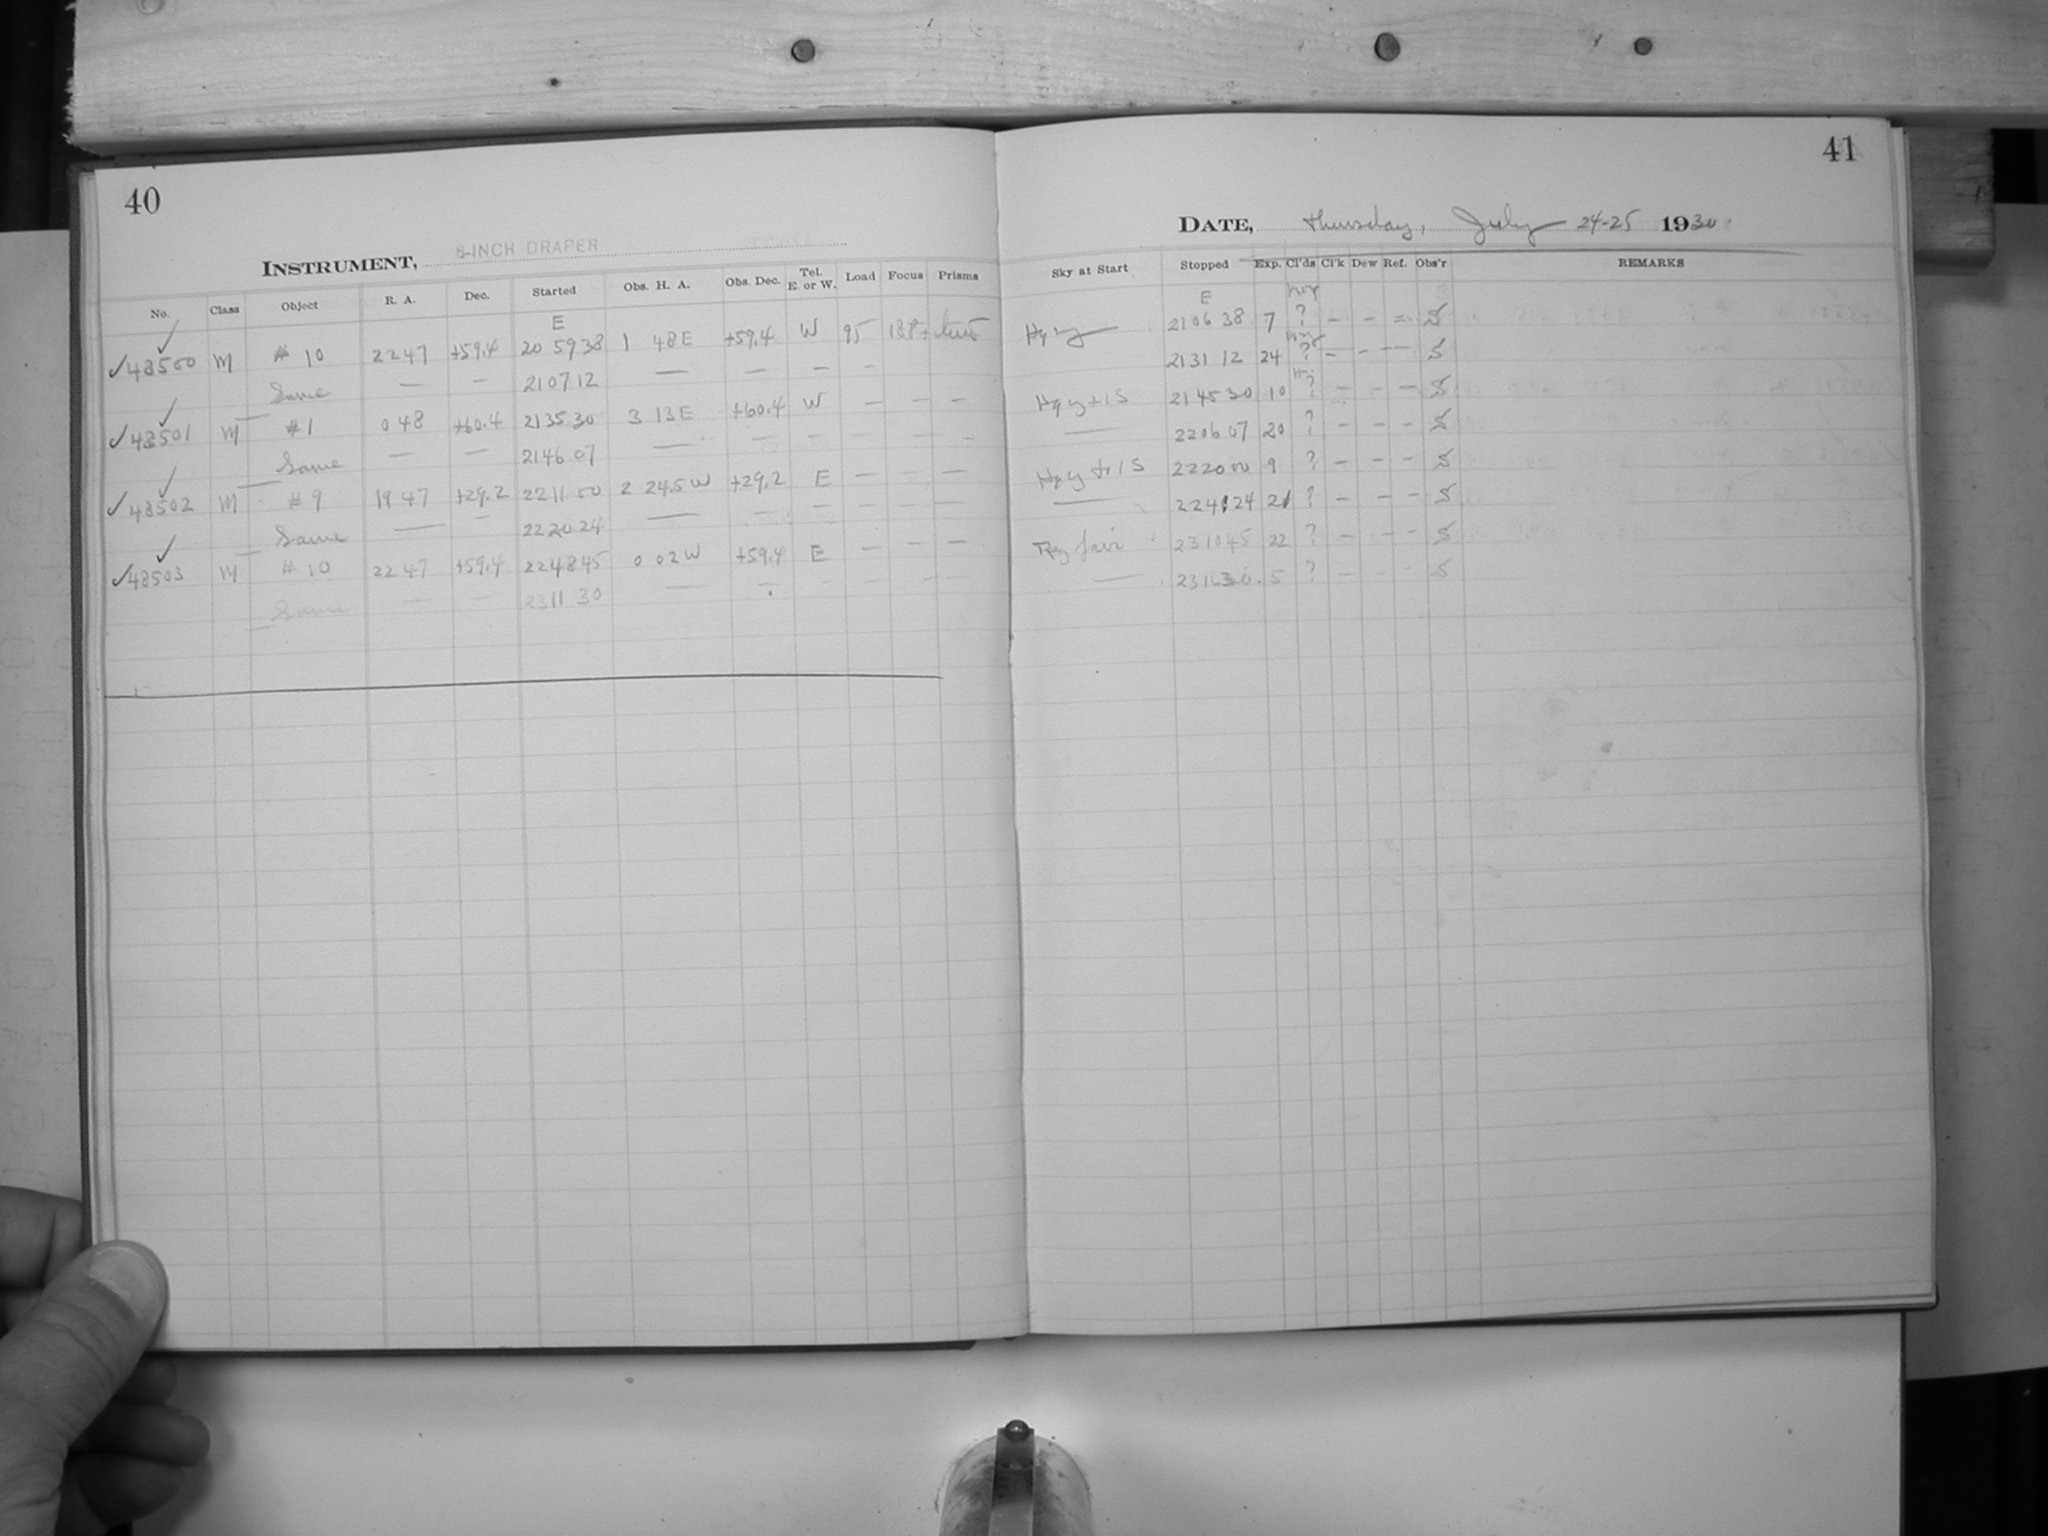 40
INSTRUMENT, 8-INCH DRAPER
No. Class Object R. A. Dec. Started Obs. H. A. Obs. Dec. Tel. E. or W. Load Focus Prisms
E
✓ 48500 M # 10 22 47 +59.4 20 59 38 1 48 E +59.4 W 95
Same — — 21 07 12 — — — —
✓ 48501 M #1 0 48 +60.4 21 35 30 3 13 E +60.4 W — — —
Same — — 21 46 07 — — — — —
✓ 48502 M #9 19 47 +29.2 22 11 00 2 24.5 W +29.2 E — — —
Same — — 22 20 24 — — — — — —
✓ 48503 M #10 22 47 +59.4 22 48 45 0 02 W +59.4 E — — —
Same — — 23 11 30 — —
41
DATE, Thursday, July 24-25 1930
Sky at Start Stopped Exp. Cl'ds Cl'k Dew Ref. Obs'r REMARKS
E
21 06 38 7 ? — — — S
21 31 12 24 ? — — — S
21 45 30 10 ? — — — S
— 22 06 07 20 ? — — — S
22 20 00 9 ? — — — S
— 22 41 24 21 ? — — — S
fair 23 10 45 22 ? — — — S
— 23 16 30 5 ? — — — S